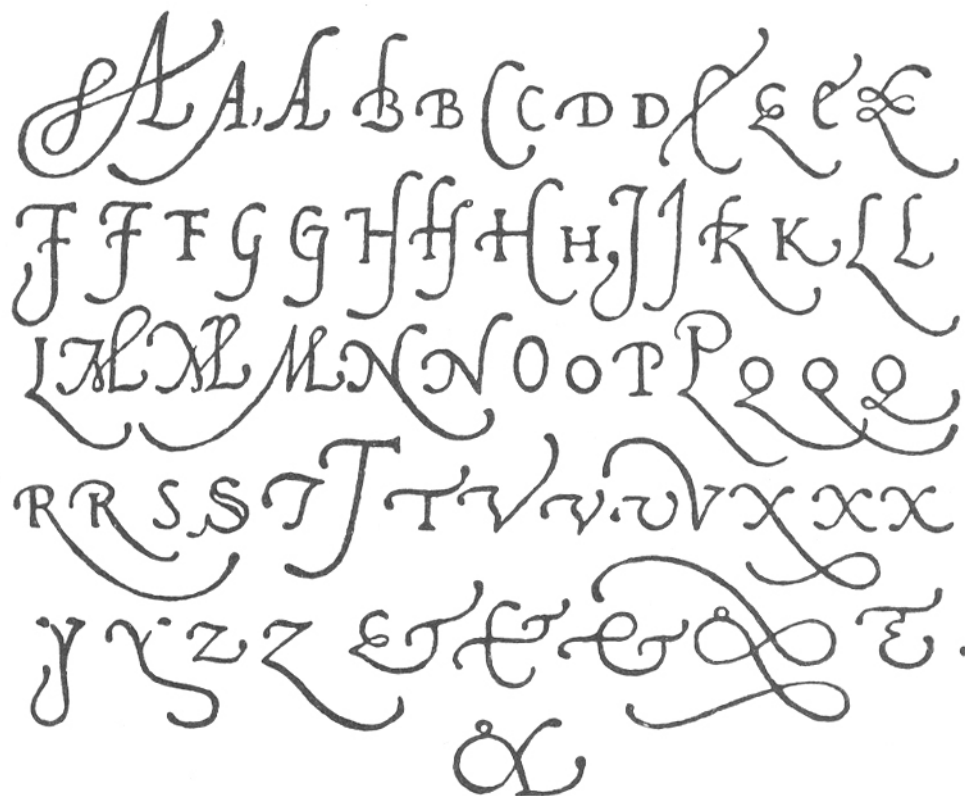 A A A B B C C D D E E E E
F F F G G H H H H J J K K L L
L M M M N N O O P P Q Q Q
R R S S T T T V V V V X X X
Y Y Z Z & & & & & .
&